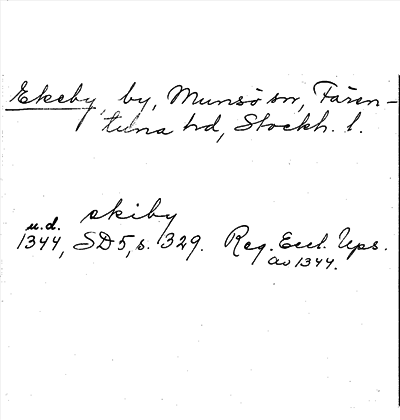 Ekeby, by, Munsö sn, Fären-
tuna hd, Stockh. l.
skiby
u.d.
1344, SD5, s. 329. Reg. Eccl. Ups.
av 1344.